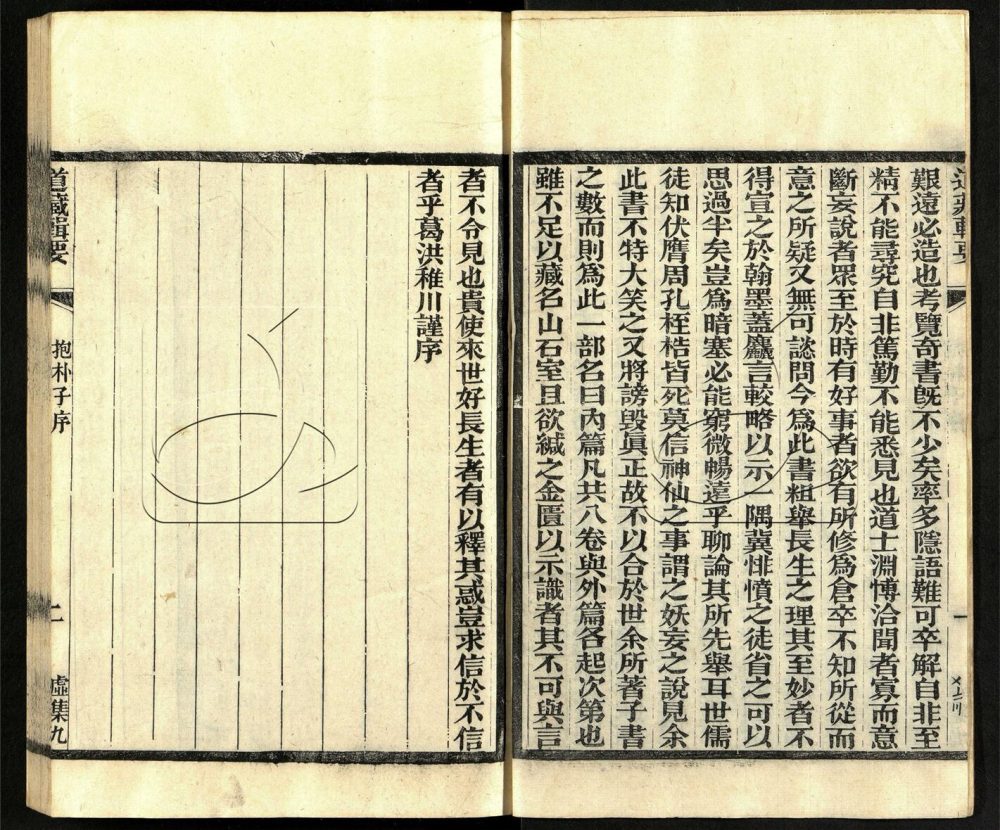 艱遠必造也考覽奇書旣不少矣率多隱語難可卒解自非至
精不能尋究自非篤勤不能悉見也道士淵愽洽聞者寡而意
斷妄說者眾至於時有好事者欲有所修爲倉卒不知所從而
意之所疑又無可諮問今爲此書粗舉長生之理其至妙者不
得宣之於翰墨蓋麤言較略以示一隅冀悱憤之徒省之可以
思過半矣豈爲暗塞必能窮微暢遠乎聊論其所先舉耳世儒
徒知伏膺周孔桎梏皆死莫信神仙之事謂之妖妄之說見余
此書不特大笑之又將謗毀眞正故不以合於世余所著子書
之數而則爲此一部名曰內篇凡共八卷與外篇各起次第也
雖不足以藏名山石室且欲緘之金匱以示識者其不可與言
者不令見也貴使來世好長生者有以釋其惑豈求信於不信
者乎葛洪稚川謹序
道藏輯要
抱朴子序
二
虛集九